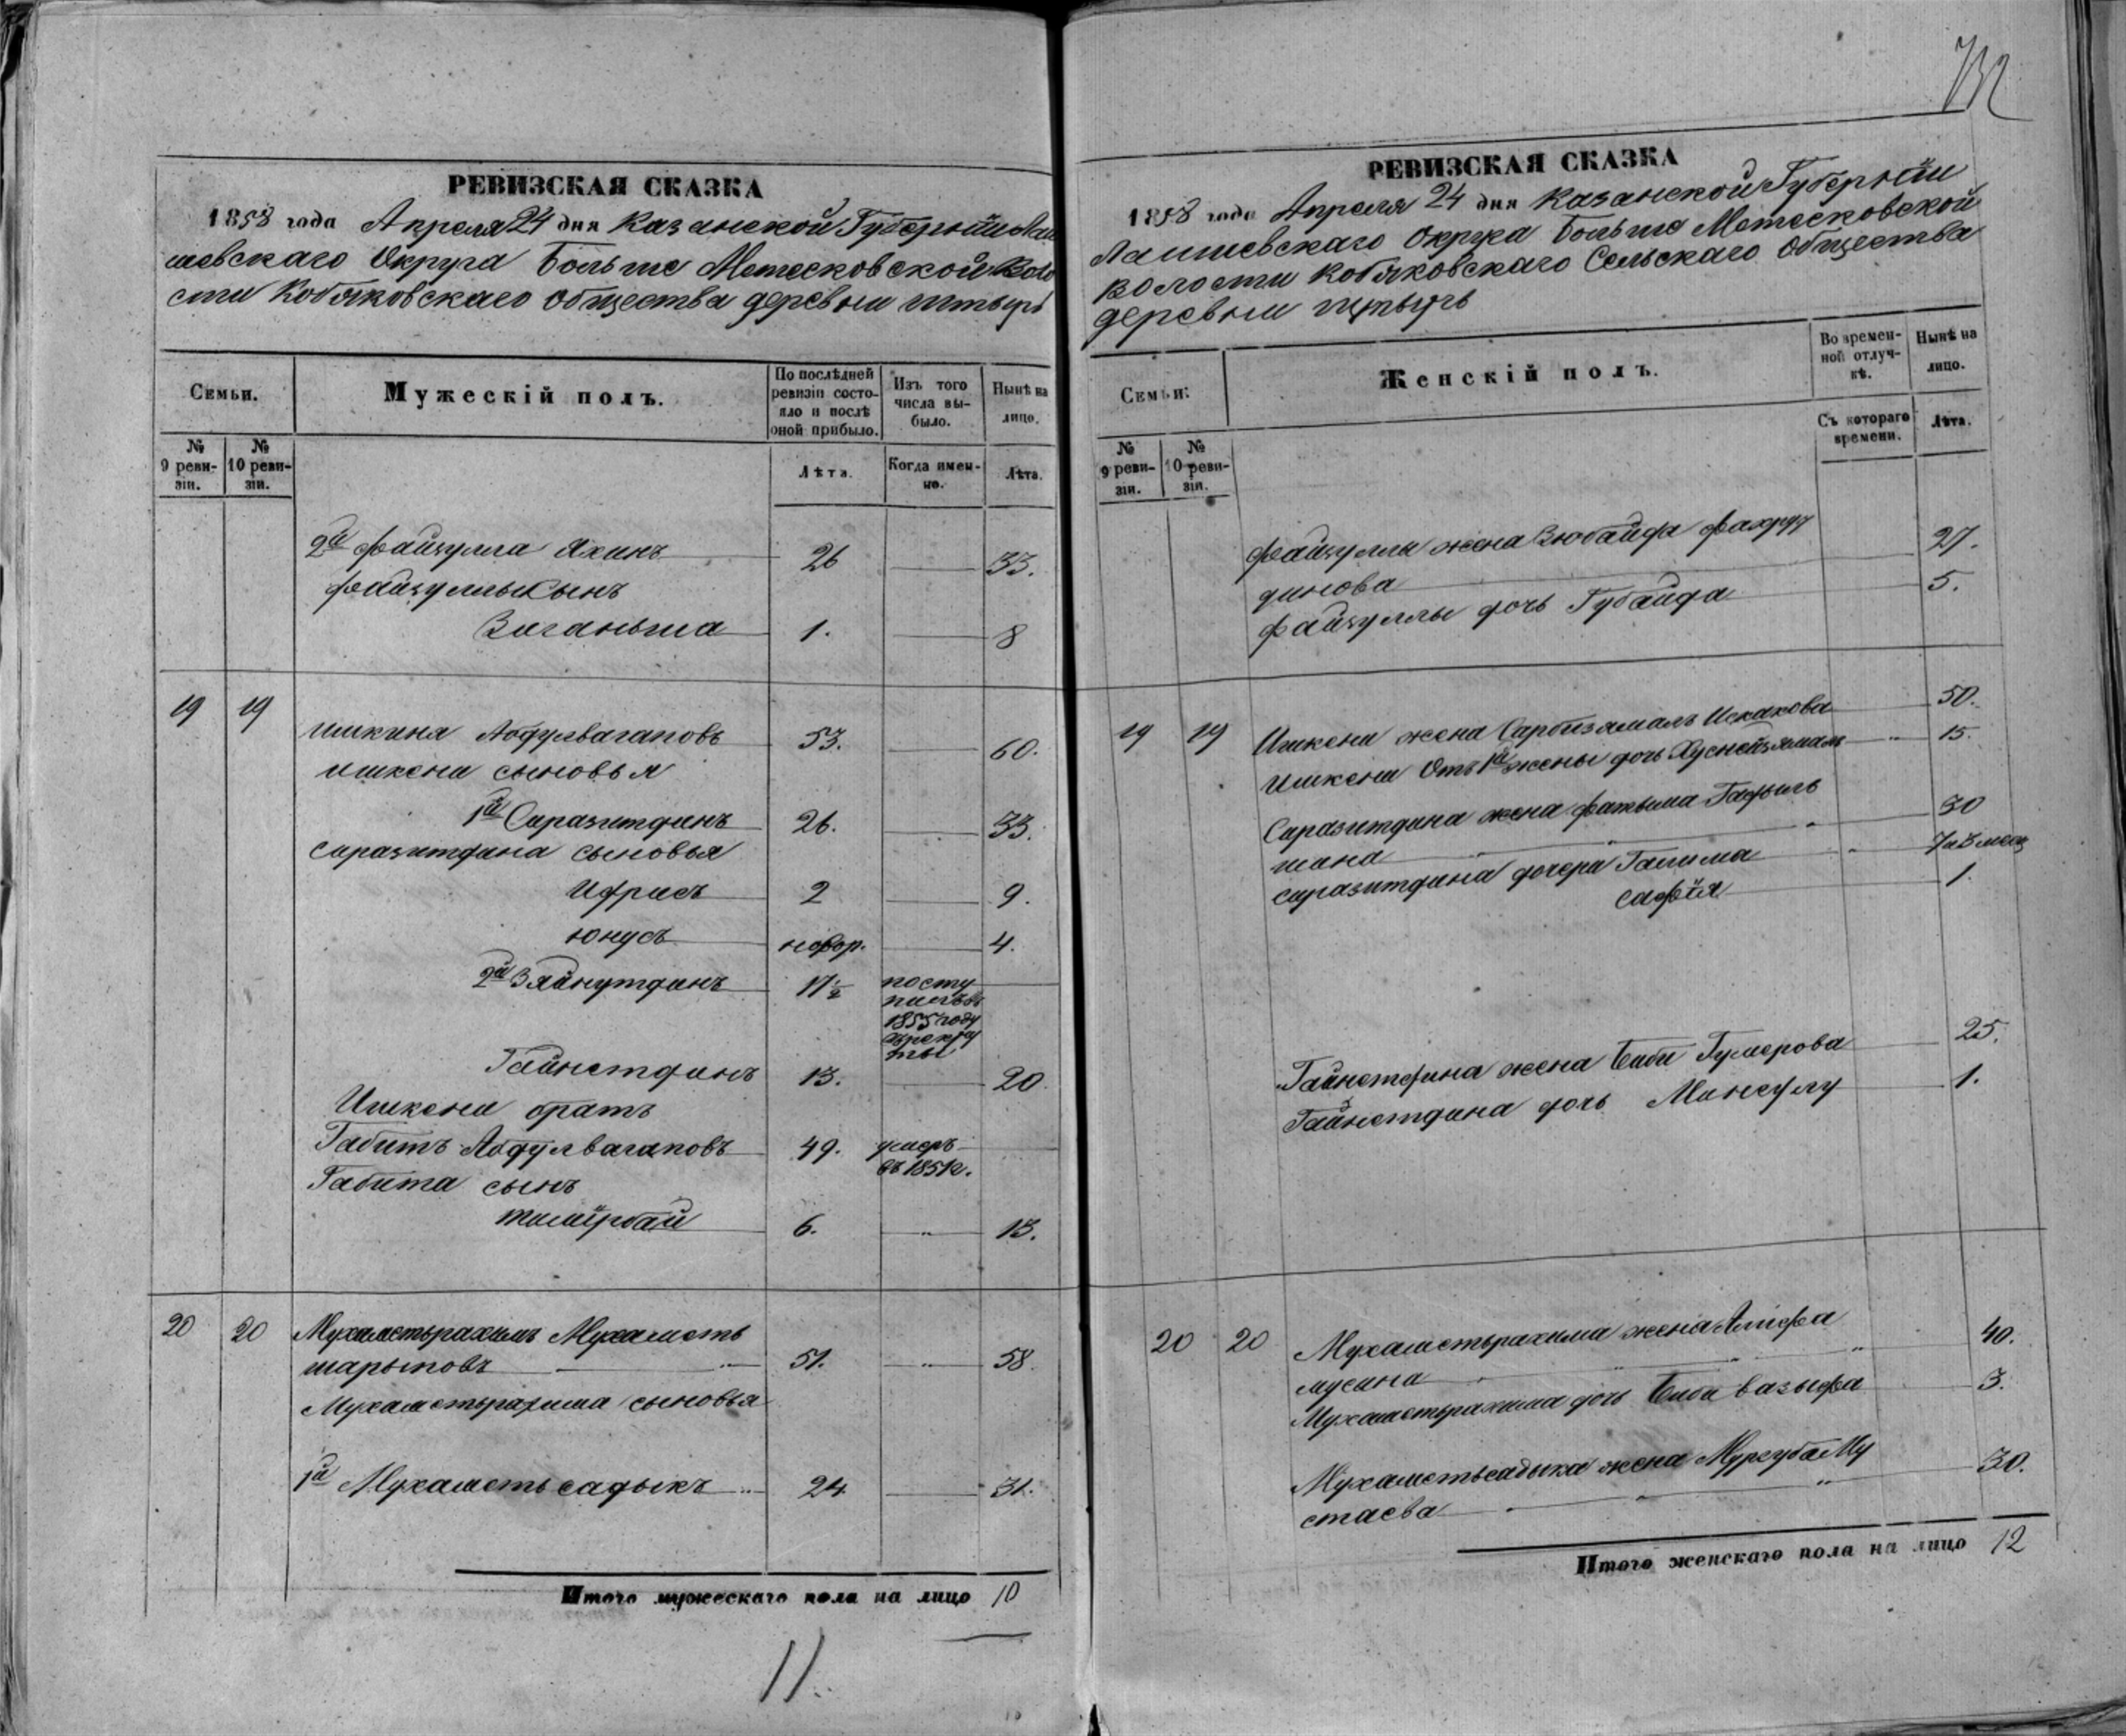 РЕВИЗСКАЯ СКАЗКА
1858 года Апреля 24 дня Казанской Губернiи Лаи
шевскаго Округа Больше Метесковской Воло
сти Кобяковскаго Общества деревни Штырь
Семьи.
Мужескiй полъ.
По послѣдней
ревизiи состо-
яло и послѣ
оной прибыло.
Изъ того
числа вы-
было.
Нынѣ на
лицо.
№
9 реви-
зiи.
№
10 реви-
зiи.
Лѣта.
Когда имен-
но.
Лѣта.
2й Файзулла Яхинъ 26 33.
Файзуллы сынъ
Зиганьша 1. 8
19 19 Ишкиня Абдулвагаповъ 53. 60.
Ишкени сыновья
1й Сиразитдинъ 26. 33.
Сиразитдина сыновья
Идрисъ 2 9.
Юнусъ новор. 4.
2й Зяйнутдинъ 17½ посту
пилъ въ
1855 году
въ рекру
ты
Гайнетдинъ 13. 20
Ишкени братъ
Габитъ Абдулвагаповъ 49. умеръ
въ 1851г.
Габита сынъ
6. 13.
20 20 Мухаметьрахимъ Мухаметь
шарыповъ 51. 58
Мухаметьрахима сыновья
1й Мухаметьсадыкъ 24 31.
Итого мужескаго пола на лицо 10
11.
732
РЕВИЗСКАЯ СКАЗКА
1858 года Апреля 24 дня Казанской Губернiи
Лаишевскаго Округа Больше Метесковской
Волости Кобяковскаго Сельскаго Общества
деревни Штырь
Семьи:
Женскiй полъ.
Во времен-
ной отлуч-
кѣ.
Нынѣ на
лицо.
№
9 реви-
зiи.
№
10 реви-
зiи.
Съ котораго
времени.
Лѣта.
Файзуллы жена Зюбайда Фахрут
динова 27.
Файзуллы дочь Губайда 5.
19 19 Ишкени жена Сарбизямалъ Искакова 50.
Ишкени Отъ 1й жены дочь Хуснейзямалъ 15.
Сиразитдина жена Фатыма Гафыль
шина 30
Сиразитдина дочери Галима 7 и 3 мес
Сафiя 1.
Гайнетдина жена Биби Гумерова 25.
Гайнетдина дочь Минсулу 1.
20 20 Мухаметьрахима жена
мусина 40.
Мухаметьрахима дочь Биби Вазыфа 3.
Мухаметьсадыка жена Му
стаева 30.
Итого женскаго пола на лицо 12